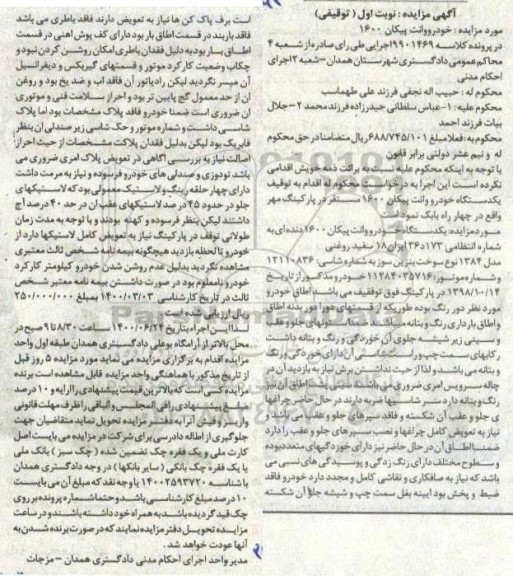 آگهی مزایده : نوبت اول ( توقیفی)
مورد مزایده : خودرو وانت پیکان ۱۶۰۰
در پرونده کلاسه ۹۹۰۱۴۶۹ اجرایی طی رای صادره از شعبه ۴
محاکم عمومی دادگستری شهرستان همدان - شعبه ۲ اجرای
احکام مدنی
محکوم له : حبیب اله نجفی فرزند علی طهماسب
محکوم علیه : ۱- عباس سلطانی حیدرزاده فرزند محمد ۲- جلال
بیات فرزند احمد
محکوم به :فعلا مبلغ ۶۸۸/۷۴۵/۱۰۱ ریال متضامنا در حق محکوم
له و نیم عشر دولتی برابر قانون
با توجه به اینکه محکوم علیه نسبت به برائت ذمه خویش اقدامی
نکرده است این اجرا به درخواست محکوم له اقدام به توقیف
یکدستگاه خودرو وانت پیکان ۱۶۰۰ مستقر در پارکینگ مهر
واقع در چهار راه بابک نموده است
مورد مزایده: یکدستگاه خودرو وانت پیکان ۱۶۰۰ دنده ای به
شماره انتظامی ۱۷۳د۳۶ ایران ۱۸ سفید روغنی
مدل ۱۳۸۴ نوع سوخت بنزین سوز به شماره شاسی: ۱۲۱۱۰۸۳۶
و شماره موتور: ۱۱۲۸۴۰۳۵۷۱۶ خودرو مذکور از تاریخ
۱۳۹۸/۱۰/۱۴ در پارکینگ فوق توقیف می باشد اطاق خودرو
مورد نظر دور رنگ بوده طوریکه از قسمتهای دور تا دور بدنه اطاق
و اطاق بارداری رنگ و بتانه می باشد ستونهای جلو و عقب
و سینی زیر شیشه جلوی آن خوردگی و رنگ و بتانه داشت
رکابهای سمت چپ و راست آن دارای خوردگی و رنگ
و بتانه می باشد و لذا از حیث نداشتن برش نیاز به بازدید آن در
چاله سرویس امری ضروری می باشد پشت اطاق آن نیز
رنگ و بتانه دارد سر شاسیها ضربه دارند در حال حاضر چراغها
ی جلو و عقب آن شکسته و فاقد سپرهای جلو و عقب می باشد و
نیاز به تعویض کامل چراغها و نصب سپرهای جلو و عقب را دارد
ضمنا اطاق آن در حال حاضر نیز دارای خوردگیهای متعدد بوده
و سطوح مختلف دارای رنگ زدگی و پوسیدگی های نسبی می
باشد که نیاز به صافکاری و نقاشی کامل و مجدد دارد خودرو فاقد
ضبط و پخش بود آیینه بغل سمت چپ و شیشه جلو آن شکسته
است برف پاک کن ها نیاز به تعویض دارند فاقد باطری می باشد
فاقد باربند در قسمت اطاق بار بود دارای کف پوش آهنی در قسمت
اطاق بار بود به دلیل فقدان باطری امکان روشن کردن نبود و
چکاپ وضعیت کارکرد موتور و قسمتهای گیربکس و دیفرانسیل
آن میسر نگردید لیکن رادیاتور آن فاقد آب و ضد یخ بود و روغن
آن از حد معمول گیج پایین تر بود و احراز سلامت فنی و موتوری
آن ضروری است ضمنا خودرو فاقد پلاک مشخصات بود اما پلاک
شاسی داشت و شماره موتور و حک شاسی زیر صندلی آن بنظر
فابریک بود لیکن بدلیل فقدان پلاکت مشخصات از حیث احراز
اصالت نیاز به بررسی آگاهی در تعویض پلاک امری ضروری می
باشد تودوزی و صندلی های خودرو فرسوده و نیاز به مرمت داشت
دارای چهار حلقه رینگ و لاستیک معمولی بود که لاستیکهای
جلو در حدود ۴۵ درصد لاستیکهای عقب آن در حد ۴۰ درصد آج
داشتند لیکن بنظر فرسوده و کهنه بودند و با توجه به مدت زمان
طولانی توقف در پارکینگ نیاز به تعویض کامل لاستیکها دارد از
خودرو تا لحظه بازدید هیچگونه بیمه نامه شخص ثالث معتبری
مشاهده نگردید بدلیل عدم روشن شدن خودرو کیلومتر کارکرد
خودرو نامعلوم بود در صورت داشتن بیمه نامه معتبر شخص
ثالث در تاریخ کارشناسی ۱۴۰۰/۰۳/۰۳ بمبلغ ۲۵۰/۰۰۰/۰۰۰
ریال ارزیابی شده است
لذا این اجرا به تاریخ ۱۴۰۰/۰۶/۲۴ ساعت ۸/۳۰ تا ۹ صبح در
محل بالاتر از آرامگاه بوعلی دادگستری همدان طبقه اول واحد
مزایده اقدام به برگزاری مزایده می نماید مورد مزایده ۵ روز قبل
از تاریخ مذکور با هماهنگی واحد مزایده قابل مشاهده است برنده
مزایده کسی است که بالاترین قیمت پیشنهادی را ارایه و ۱۰ درصد
مبلغ پیشنهادی را فی المجلس و الباقی را ظرف مهلت قانونی
واریز و فیش آنرا به دفتر مزایده تحویل نماید متقاضیان جهت
جلوگیری از اطاله دادرسی برای شرکت در مزایده می بایست اصل
کارت ملی و یک فقره چک تضمین شده ( چک سبز ) بانک ملی
یا یک فقره چک بانکی ( سایر بانکها ) در وجه دادگستری همدان
با شناسه ۱۴۰۰۲۵۹۳۷۲۰ با وجه نقد که مبلغ آن می بایست
۱۰ درصد مبلغ کارشناسی باشد و حتما شماره پرونده بر روی
چک قید گردیده باشد به همراه خود داشته باشند و در ساعت
مزایده تحویل دفتر مزایده نمایند که در صورت برنده شدن به
آنها عودت خواهد شد .
مدیر واحد اجرای احکام مدنی دادگستری همدان - مزجات